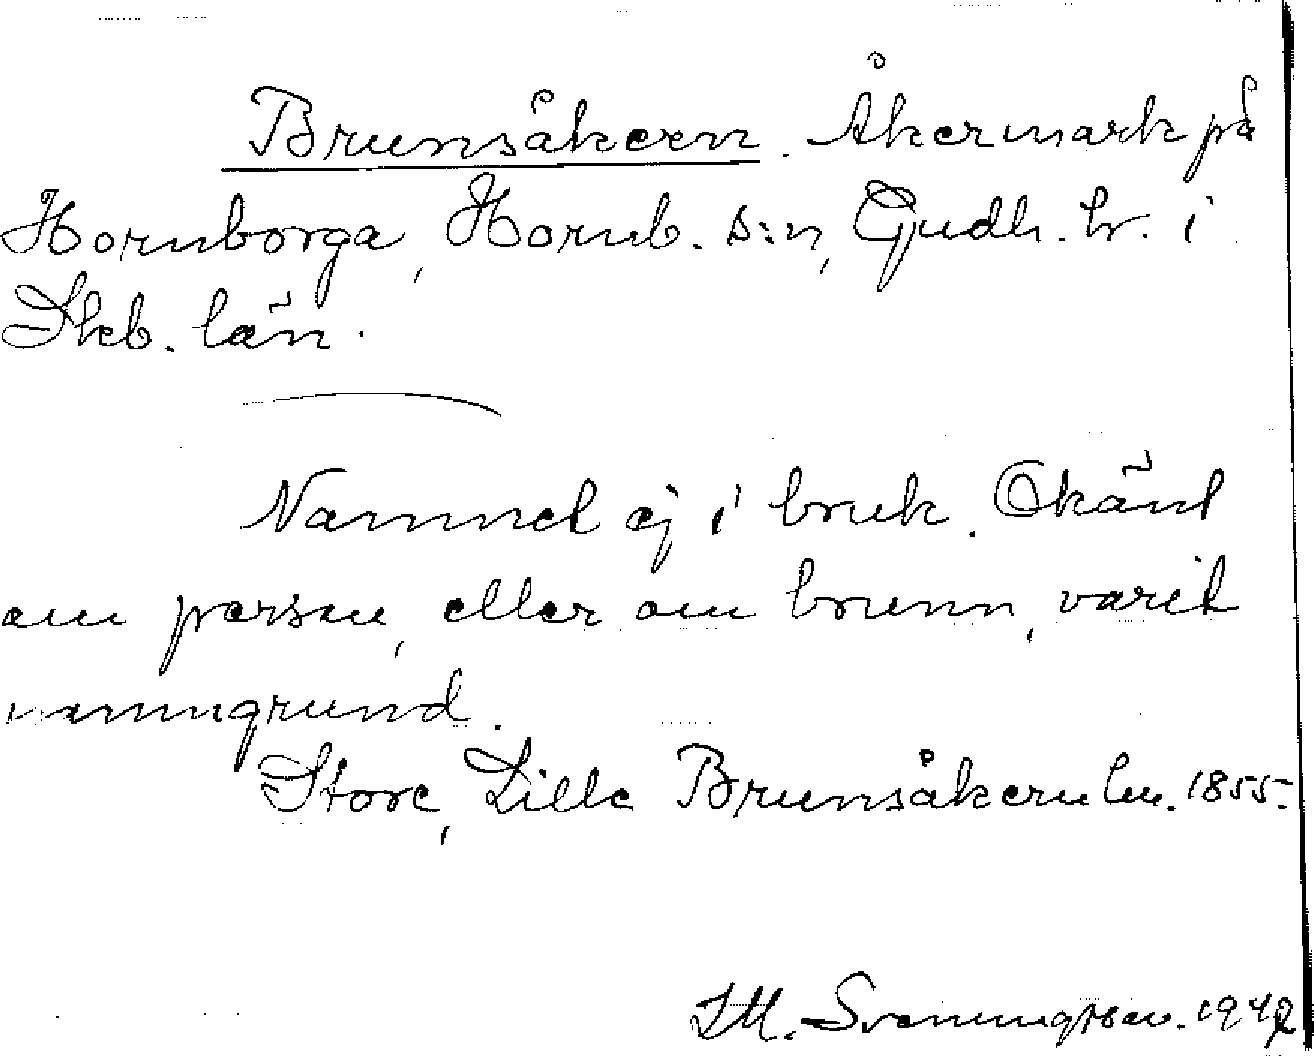 Brunsåkern. Åkermark på
Hornborga, Hornb. s:n, Gudh. hr. i
Skb. län.
Namnet ej i bruk. Okänt
om person, eller om brunn, varit
namngrund.
Store, Lille Brunsåkern lm. 1855.
J.M. Svenningsson. 1942